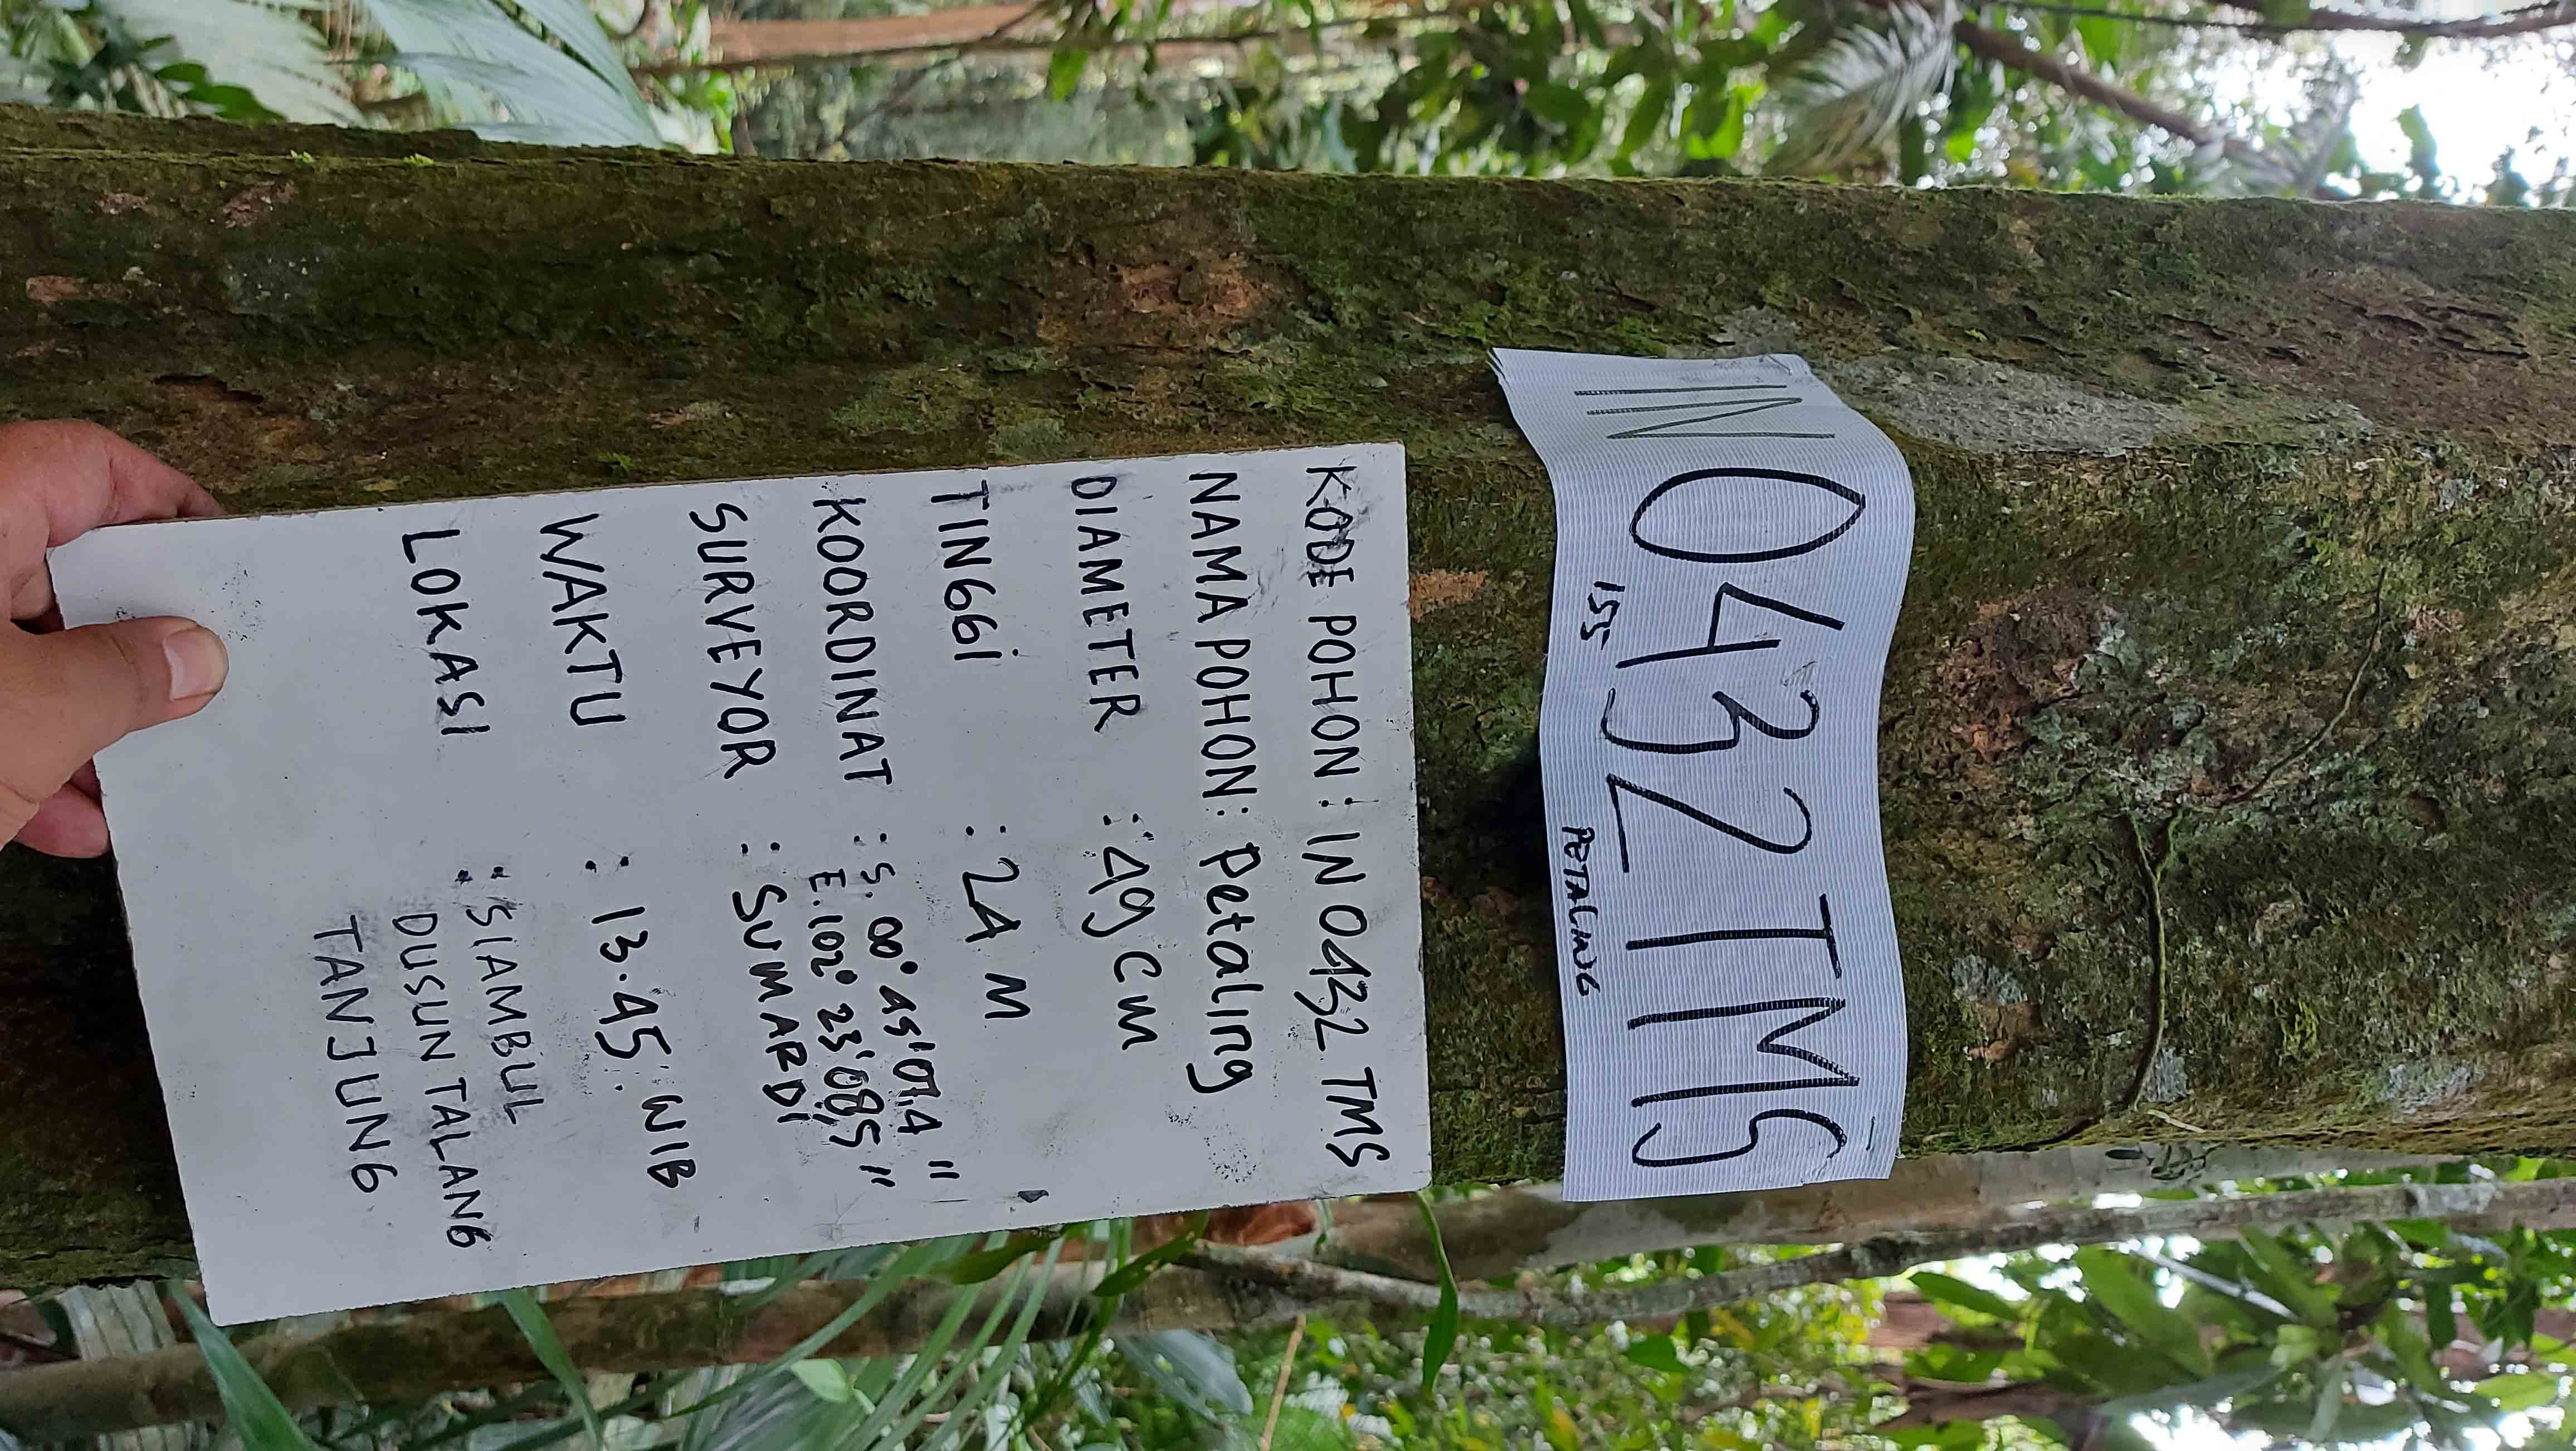 IN 0432 TMS
155 PETALING
KODE POHON : IN 0432 TMS
NAMA POHON : Petaling
DIAMETER : 49 cm
TINGGi : 24 M
KOORDINAT : S. 00° 45' 07,4 "
E. 102° 23' 08,5 "
SURVEYOR : SUMARDi
WAKTU : 13.45 WIB
LOKASI : SIAMBUL
DUSUN TALANG
TANJUNG